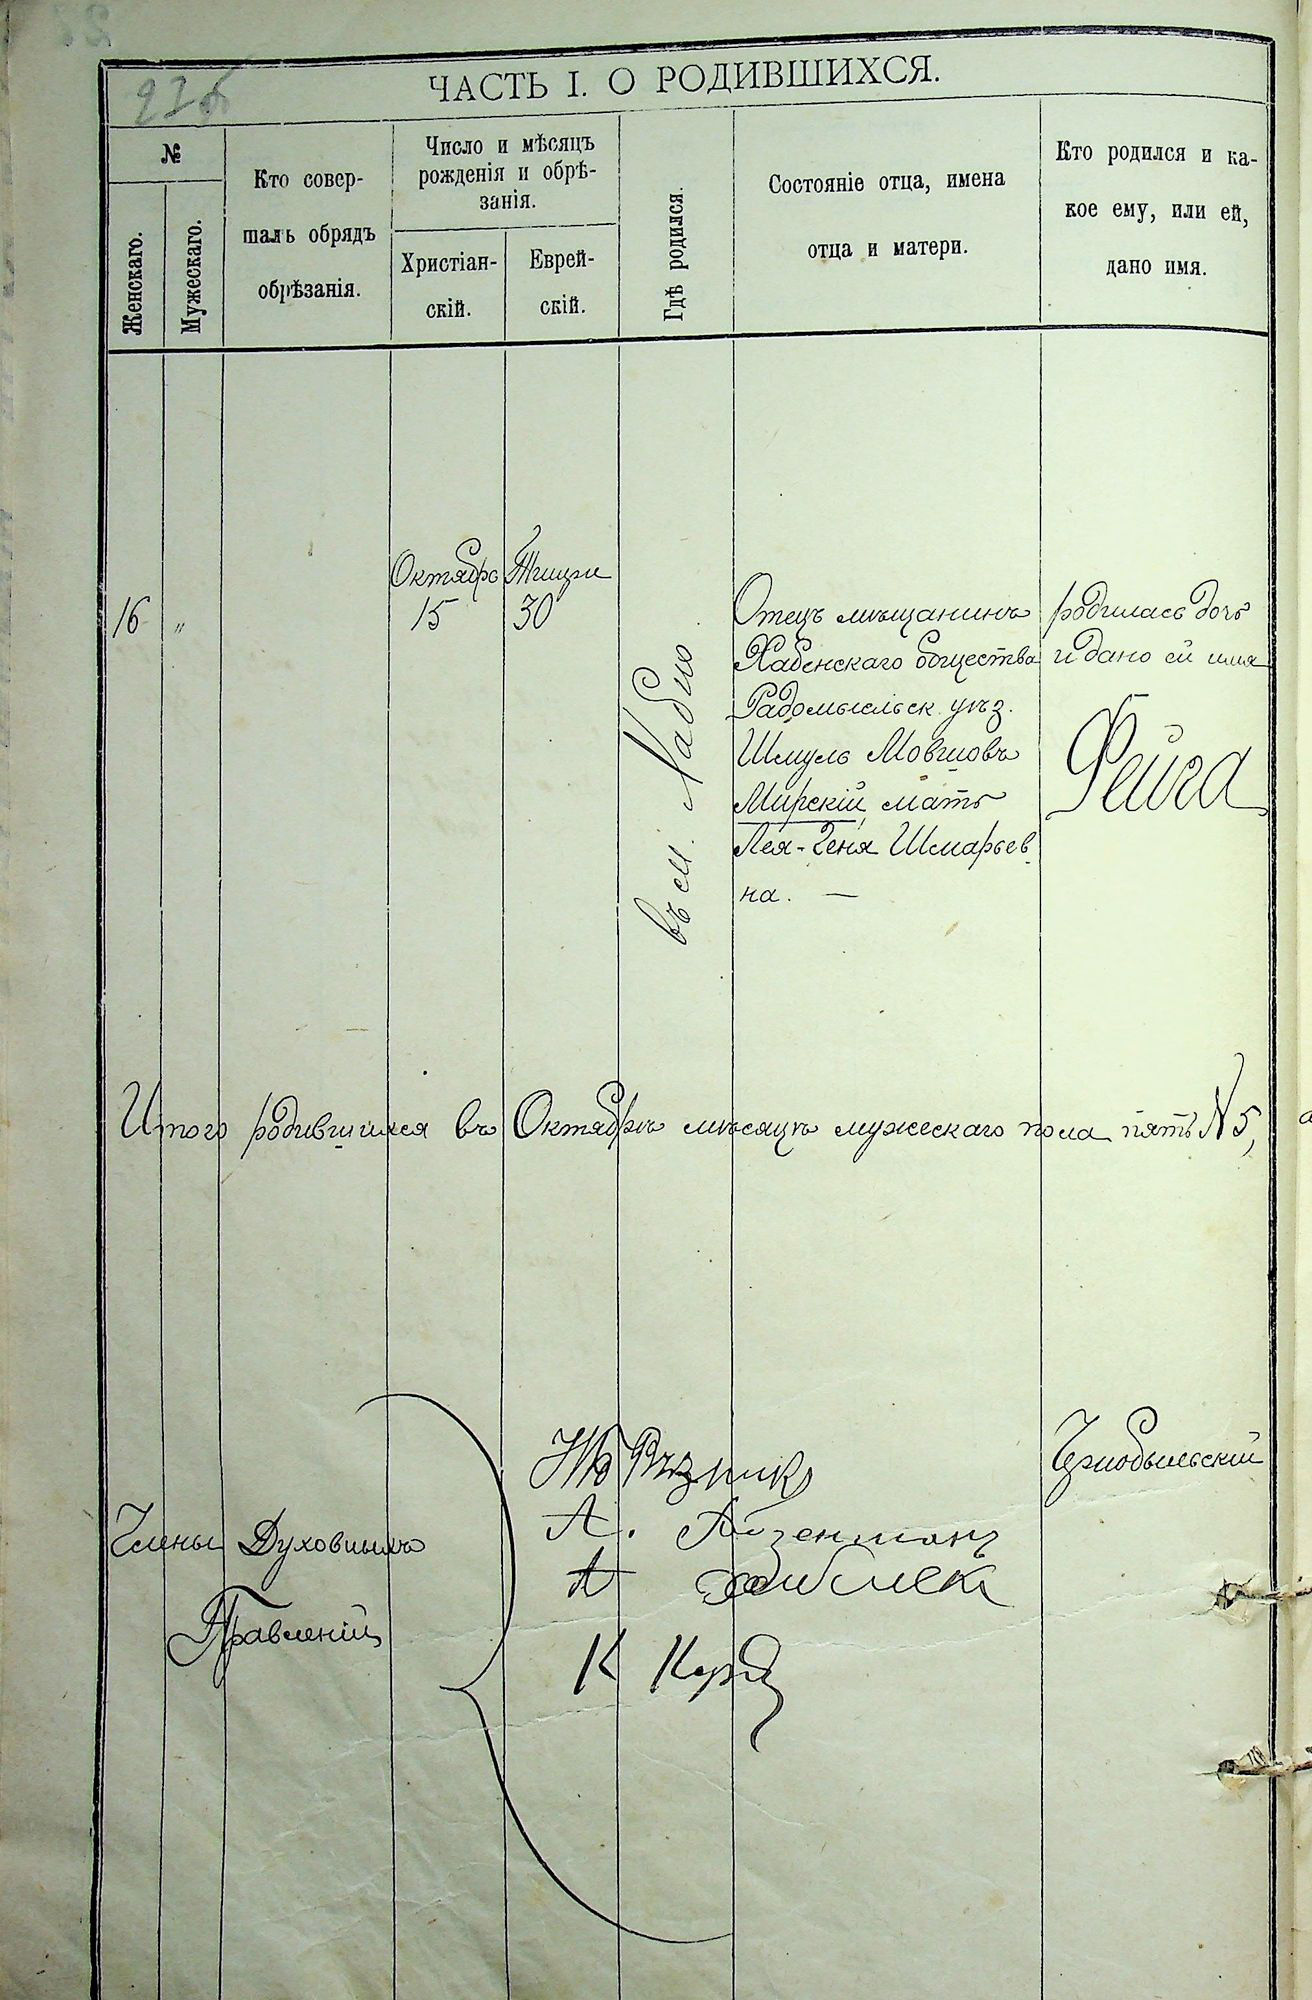 ЧАСТЬ I. О РОДИВШИХСЯ.
№
Женскаго.
Мужескаго.
Кто совер-
шалъ обрядъ
обрѣзанія.
Число и мѣсяцъ
рожденія и обрѣ-
занія.
Христіан-
скій.
Еврей-
скій.
Гдѣ родился.
Состояніе отца, имена
отца и матери.
Кто родился и ка-
кое ему, или ей,
дано имя.
16
"
Октябрь
15
Тишри
30
въ м. Хабно
Отецъ мѣщанинъ
Хабенскаго общества
Радомысльск. уѣз.
Шмуль Мовшовъ
Мирскій, мать
Лея-Геня Шмарьев
на. —
родилась дочь
и дано ей имя
Фейга
Итого родившихся въ Октябрѣ мѣсяцѣ мужескаго пола пять N 5,
Члены Духовныхъ
Правленій
Рѣзникъ
А. Айзенманъ
А
К
Чернобыльскій